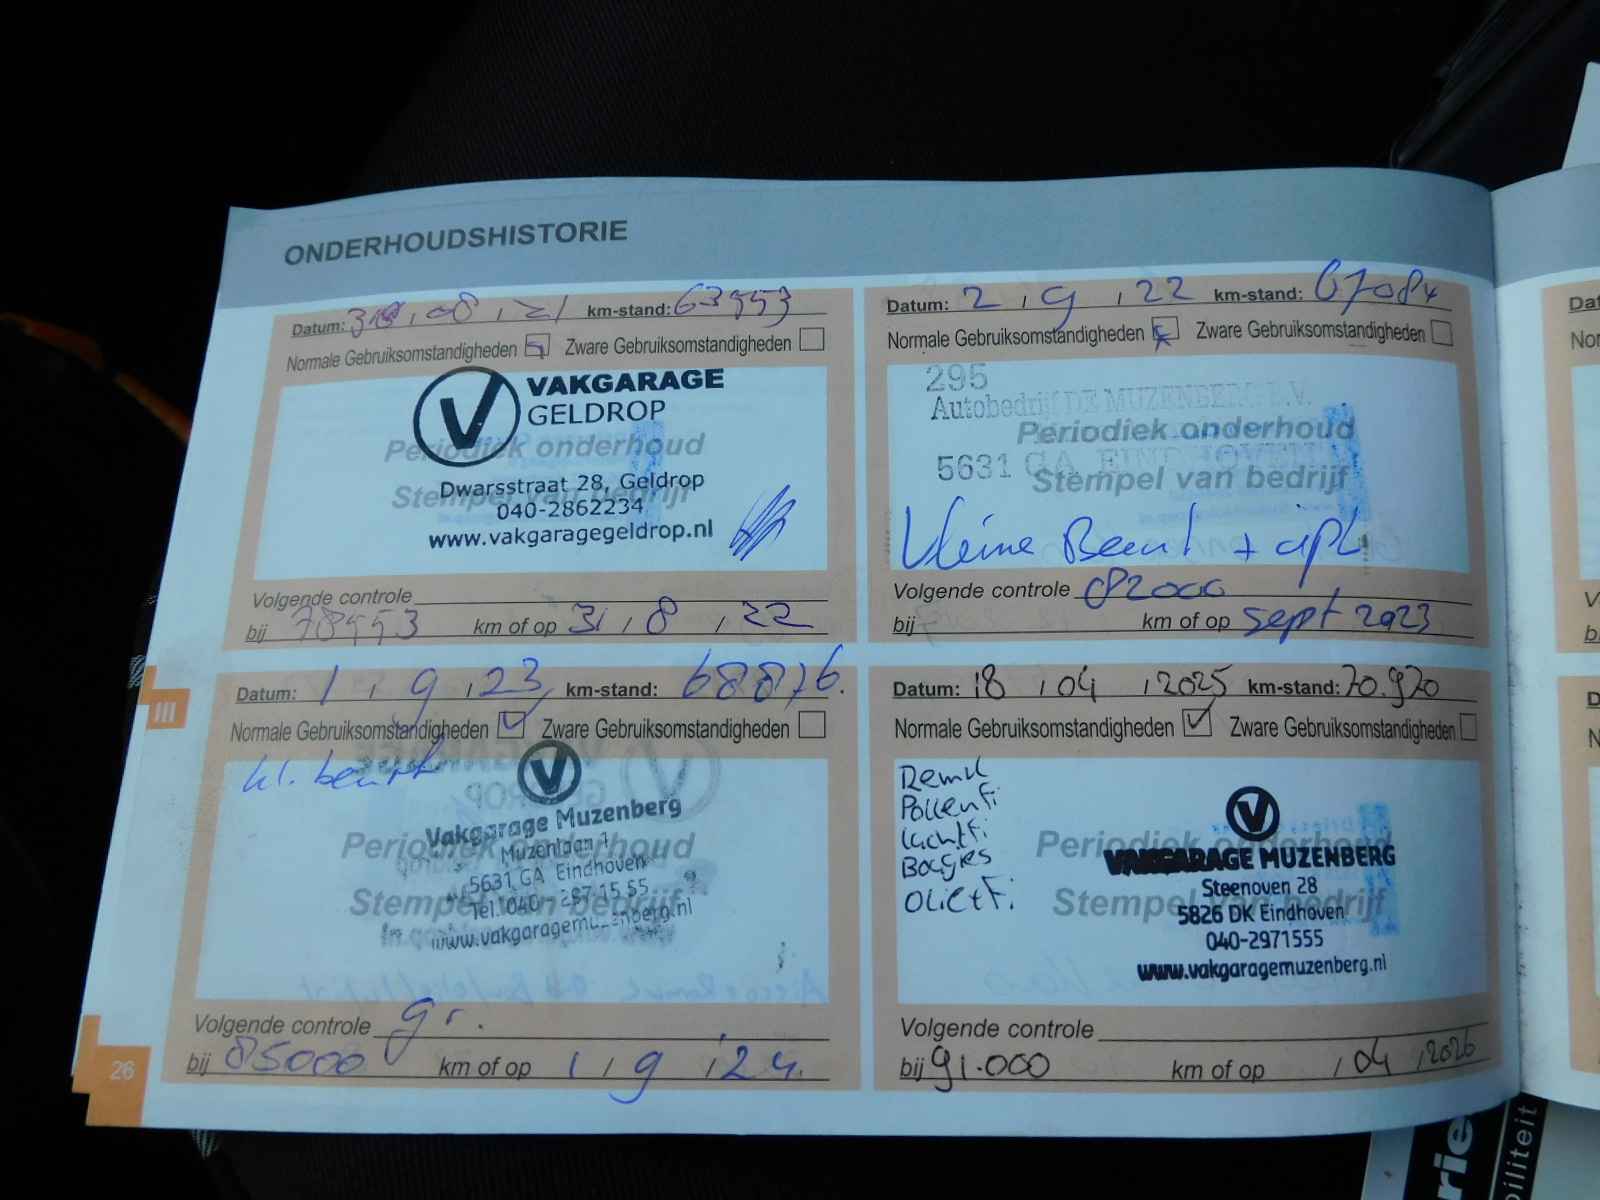 ONDERHOUDSHISTORIE
Datum: 31, 08, 21 km-stand: 63553
Normale Gebruiksomstandigheden Zware Gebruiksomstandigheden
VAKGARAGE
GELDROP
Periodiek onderhoud
Dwarsstraat 28, Geldrop
Stempel van bedrijf
040-2862234
www.vakgaragegeldrop.nl
Volgende controle
bij 78553 km of op 31, 8, 22
Datum: 2, 9, 22 km-stand: 67084
Normale Gebruiksomstandigheden Zware Gebruiksomstandigheden
295
Autobedrijf DE MUZENBERG B.V.
Periodiek onderhoud
5631 GA EINDHOVEN
Stempel van bedrijf
kleine Beurt + apk
Volgende controle 82000
bij km of op sept 2023
Datum: 1, 9, 23 km-stand: 68876.
Normale Gebruiksomstandigheden Zware Gebruiksomstandigheden
kl. beurt
Vakgarage Muzenberg
Periodiek onderhoud
Muzenlaan 1
5631 GA Eindhoven
Stempel van bedrijf
Tel. 040 - 297 15 55
www.vakgaragemuzenberg.nl
Volgende controle gr.
bij 85000 km of op 1, 9, 24.
Datum: 18, 04, 2025 km-stand: 70.970
Normale Gebruiksomstandigheden Zware Gebruiksomstandigheden
Remvl
Pollenfi
Luchtfi
Bogies
Olie+Fi.
Periodiek onderhoud
VAKGARAGE MUZENBERG
Steenoven 28
Stempel van bedrijf
5826 DK Eindhoven
040-2971555
www.vakgaragemuzenberg.nl
Volgende controle
bij 91.000 km of op , 04, 2026
III
26
rie
biliteit